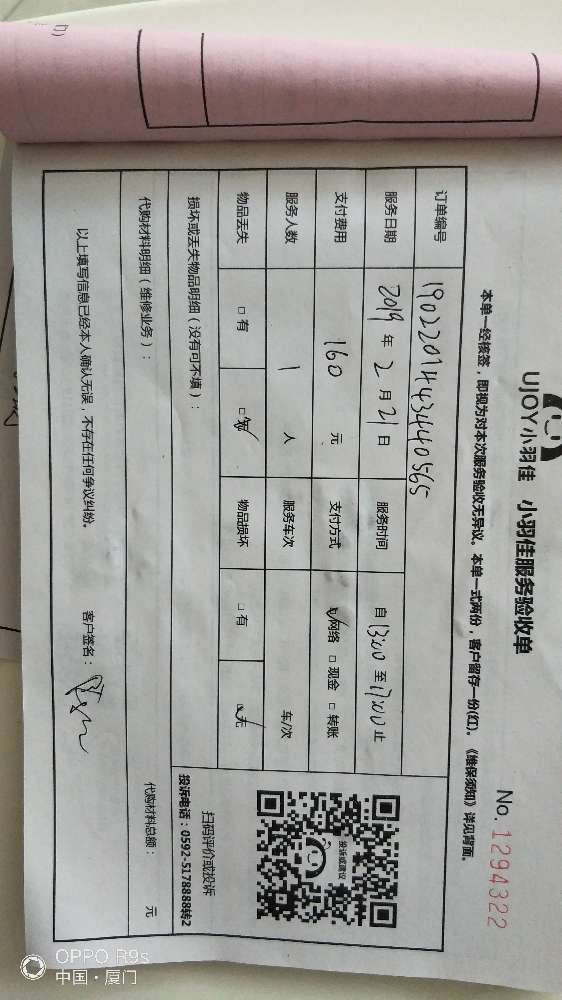 UJOY小羽佳 小羽佳服务验收单
No. 1294322
本单一经核签，即视为对本次服务验收无异议。本单一式两份，客户留存一份(红)。《维保须知》详见背面。
订单编号 1902201443440565
服务日期 2019 年 2 月 21 日 服务时间 自 13:00 至 17:00 止
支付费用 160 元 支付方式 ☑网络 □现金 □转账
服务人数 1 人 服务车次 车/次
物品丢失 □有 ☑无 物品损坏 □有 ☑无
投诉或建议
扫码评价或投诉
投诉电话：0592-5178888转2
损坏或丢失物品明细（没有可不填）：
代购材料明细（维修业务）：
代购材料总额： 元
以上填写信息已经本人确认无误，不存在任何争议纠纷。 客户签名：
OPPO R9s
中国·厦门